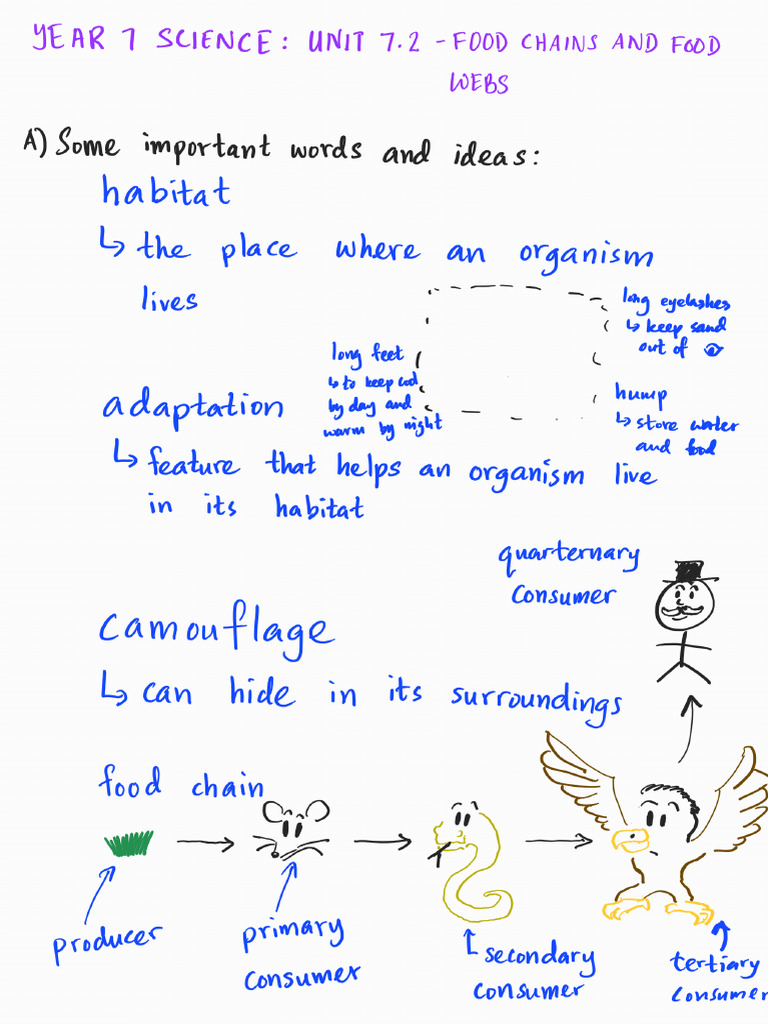 YEAR 7 SCIENCE: UNIT 7.2 - FOOD CHAINS AND FOOD
WEBS
A) Some important words and ideas:
habitat
↳ the place where an organism
lives
long eyelashes
↳ keep sand
out of
long feet
↳ to keep cool
by day and
warm by night
hump
↳ store water
and food
adaptation
↳ feature that helps an organism live
in its habitat
quarternary
consumer
camouflage
↳ can hide in its surroundings
food chain
producer
primary
consumer
secondary
consumer
tertiary
consumer